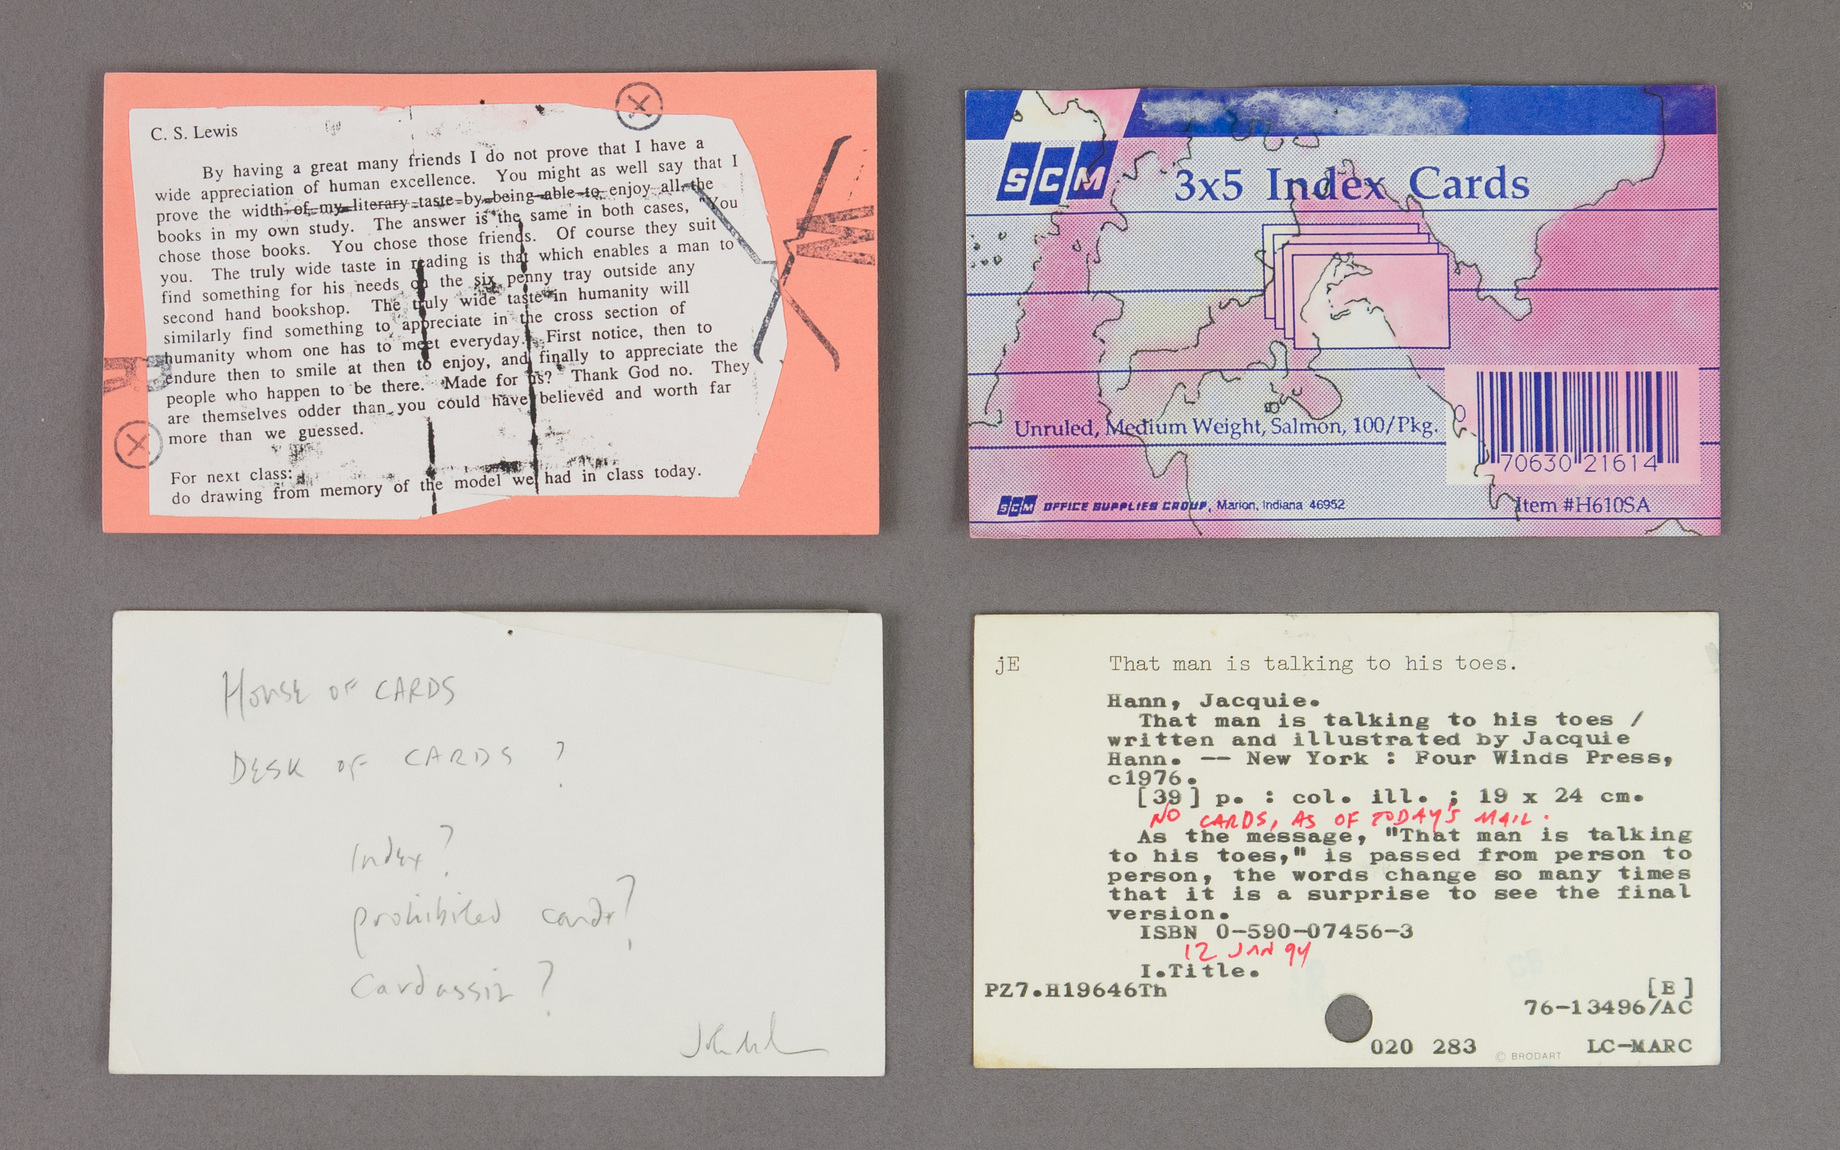 C. S. Lewis
By having a great many friends I do not prove that I have a
wide appreciation of human excellence. You might as well say that I
prove the width of my literary taste by being able to enjoy all the
books in my own study. The answer is the same in both cases, "You
chose those books. You chose those friends. Of course they suit
you. The truly wide taste in reading is that which enables a man to
find something for his needs on the six penny tray outside any
second hand bookshop. The truly wide taste in humanity will
similarly find something to appreciate in the cross section of
humanity whom one has to meet everyday. First notice, then to
endure then to smile at then to enjoy, and finally to appreciate the
people who happen to be there. Made for us? Thank God no. They
are themselves odder than you could have believed and worth far
more than we guessed.
For next class:
do drawing from memory of the model we had in class today.
SCM
3x5 Index Cards
Unruled, Medium Weight, Salmon, 100/Pkg.
0 70630 21614
SCM OFFICE SUPPLIES GROUP, Marion, Indiana 46952
Item #H610SA
HOUSE OF CARDS
DESK OF CARDS ?
Index?
prohibited cards?
Cardassin ?
jE That man is talking to his toes.
Hann, Jacquie.
That man is talking to his toes /
written and illustrated by Jacquie
Hann. -- New York : Four Winds Press,
c1976.
[39] p. : col. ill. ; 19 x 24 cm.
NO CARDS, AS OF TODAY'S MAIL.
As the message, "That man is talking
to his toes," is passed from person to
person, the words change so many times
that it is a surprise to see the final
version.
ISBN 0-590-07456-3
12 JAN 94
I.Title.
PZ7.H19646Th [E]
76-13496/AC
020 283 © BRODART LC-MARC